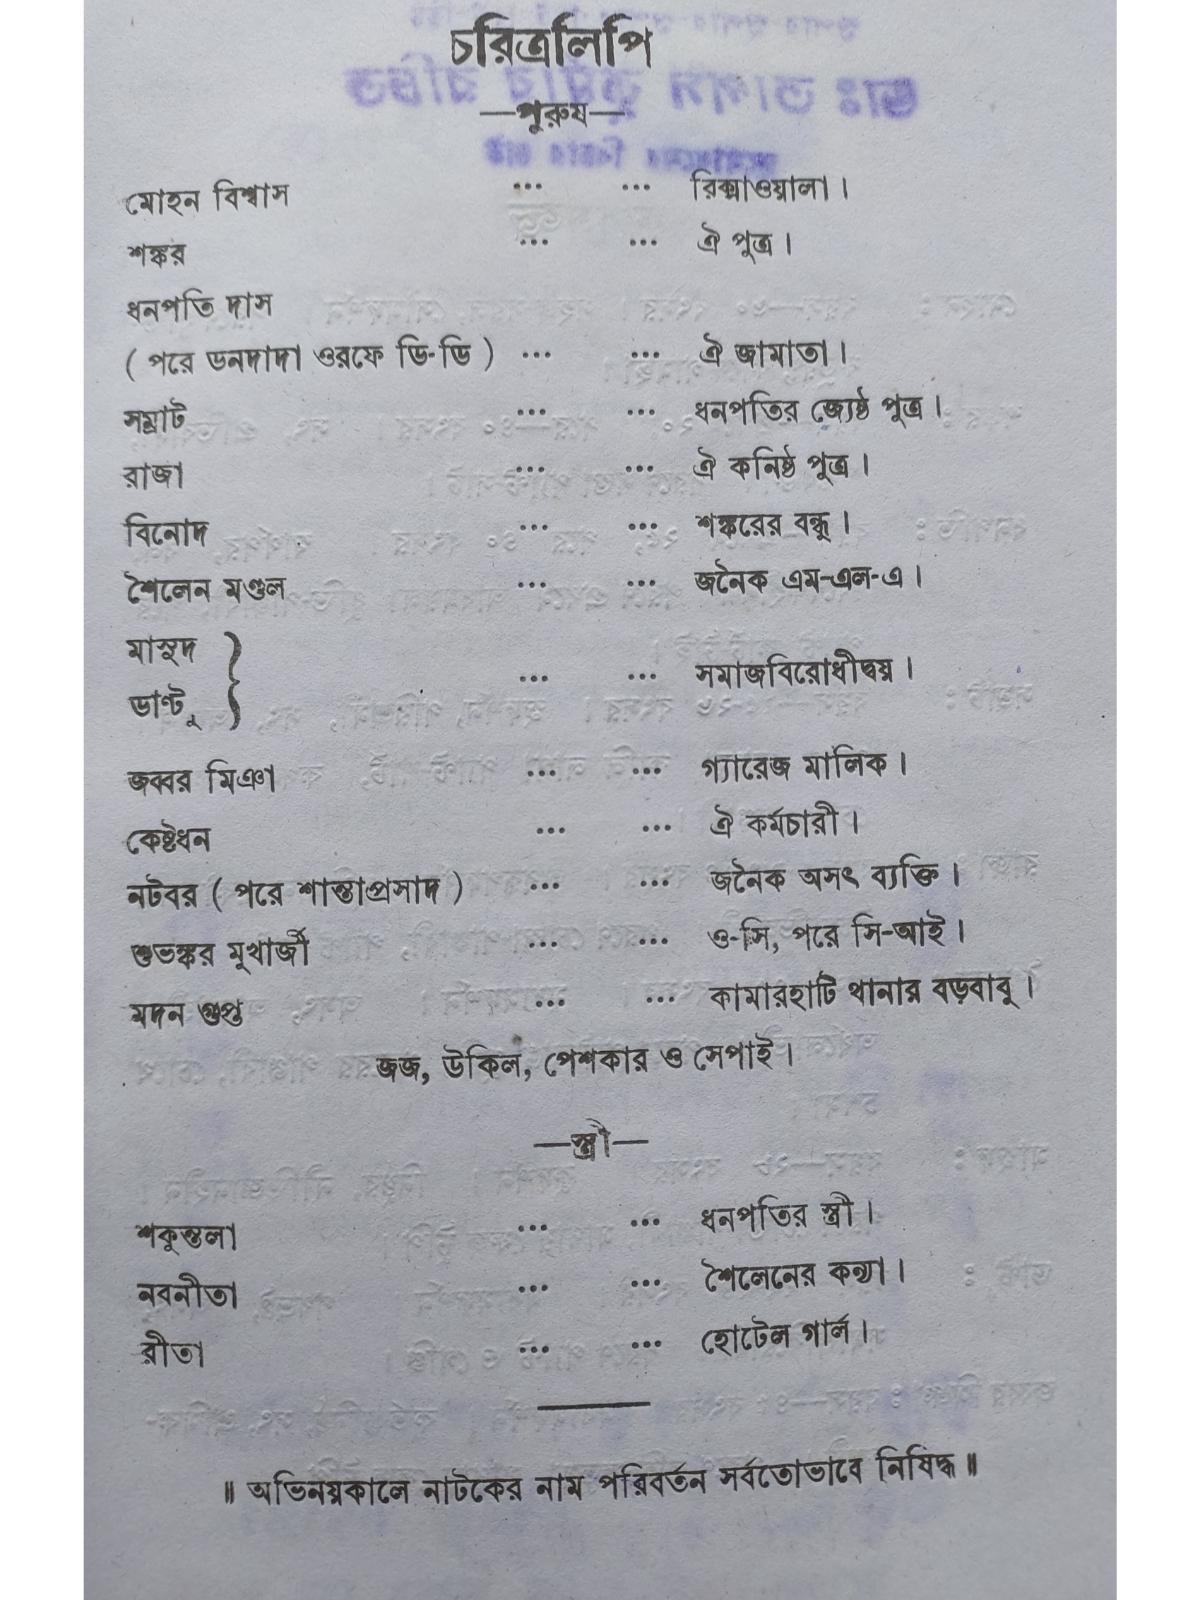 চরিত্রলিপি
—পুরুষ—
মোহন বিশ্বাস ... ... রিক্সাওয়ালা।
শঙ্কর ... ... ঐ পুত্র।
ধনপতি দাস
( পরে ডনদাদা ওরফে ডি-ডি ) ... ... ঐ জামাতা।
সম্রাট ... ... ধনপতির জ্যেষ্ঠ পুত্র।
রাজা ... ... ঐ কনিষ্ঠ পুত্র।
বিনোদ ... ... শঙ্করের বন্ধু।
শৈলেন মণ্ডল ... ... জনৈক এম-এল-এ।
মাসুদ
ডাণ্টু } ... ... সমাজবিরোধীদ্বয়।
জব্বর মিঞা ... ... গ্যারেজ মালিক।
কেষ্টধন ... ... ঐ কর্মচারী।
নটবর ( পরে শান্তাপ্রসাদ ) ... ... জনৈক অসৎ ব্যক্তি।
শুভঙ্কর মুখার্জী ... ... ও-সি, পরে সি-আই।
মদন গুপ্ত ... ... কামারহাটি থানার বড়বাবু।
জজ, উকিল, পেশকার ও সেপাই।
—স্ত্রী—
শকুন্তলা ... ... ধনপতির স্ত্রী।
নবনীতা ... ... শৈলেনের কন্যা।
রীতা ... ... হোটেল গার্ল।
॥ অভিনয়কালে নাটকের নাম পরিবর্তন সর্বতোভাবে নিষিদ্ধ ॥